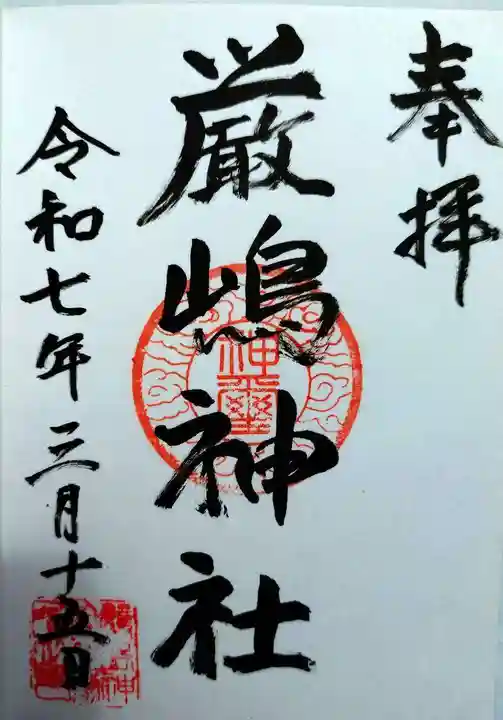 奉拝
厳嶋神社
神璽
令和七年三月十五日